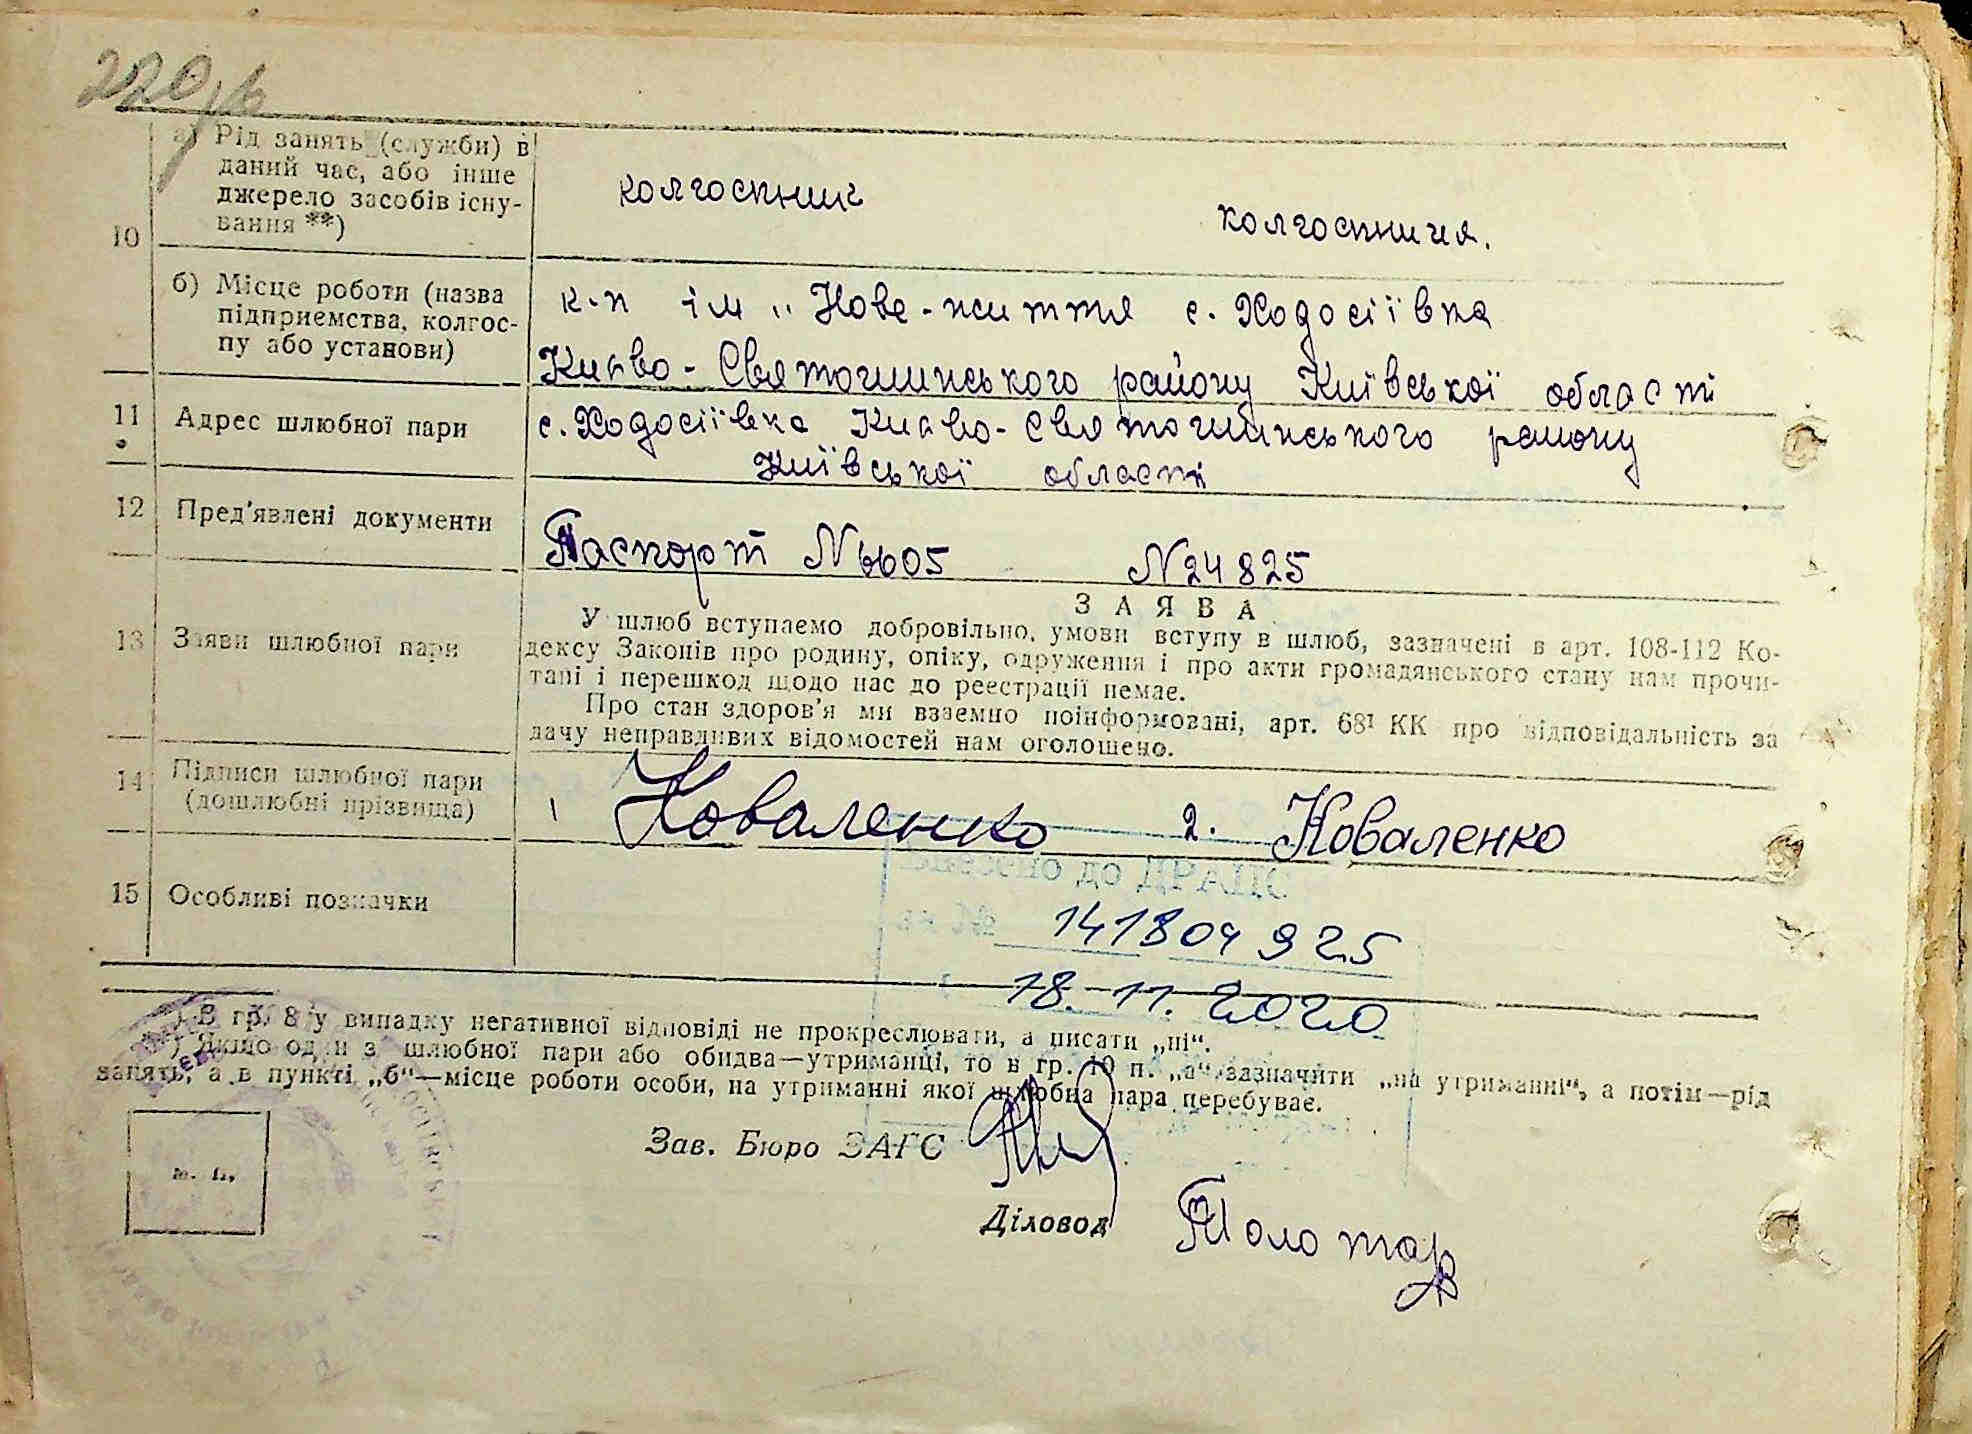 220
10
а) Рід занять (служби) в
даний час, або інше
джерело засобів існу-
вання **)
колгоспник
колгоспниця.
б) Місце роботи (назва
підприємства, колгос-
пу або установи)
к-п ім „ Нове-життя с. Ходосіївка
Києво-Святошинського району Київської області
11
Адрес шлюбної пари
с. Ходосіївка Києво-Святошинського району
Київської області
12
Пред'явлені документи
Паспорт N 6605 N 24825
13
Заяви шлюбної пари
ЗАЯВА
У шлюб вступаємо добровільно, умови вступу в шлюб, зазначені в арт. 108-112 Ко-
дексу Законів про родину, опіку, одруження і про акти громадянського стану нам прочи-
тані і перешкод щодо нас до реєстрації немає.
Про стан здоров'я ми взаємно поінформовані, арт. 68¹ КК про відповідальність за
дачу неправдивих відомостей нам оголошено.
14
Підписи шлюбної пари
(дошлюбні прізвища)
1 Коваленко 2. Коваленко
15
Особливі позначки
до ДРАЦС
141804925
18.11.2020
*) В гр. 8 у випадку негативної відповіді не прокреслювати, а писати „ні“.
**) Якщо один з шлюбної пари або обидва—утриманці, то в гр. 10 п. „а“ зазначити „на утриманні“, а потім—рід
занять, а в пункті „б“—місце роботи особи, на утриманні якої шлюбна пара перебуває.
м. п.
Зав. Бюро ЗАГС
Діловод